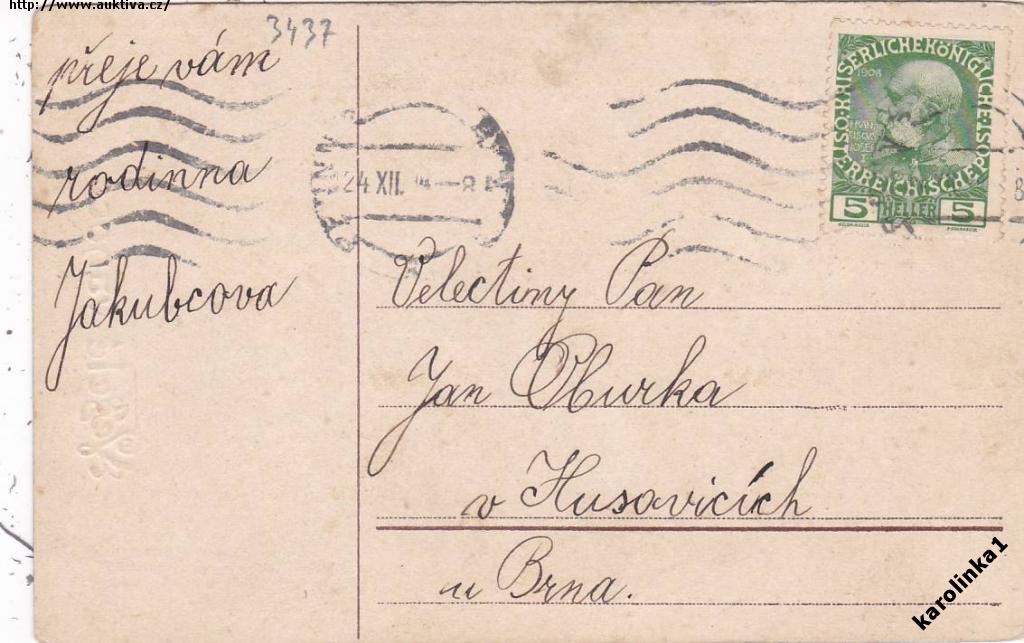 http://www.auktiva.cz/
3437
přeje vám
rodinna
Jakubcova
24 XII. 14
KAISERLICHEKÖNIGLICHE
ÖSTERREICHISCHEPOST
1908
1908
5 HELLER 5
Velectiny Pan
Jan Oburka
v Husovicích
u Brna.
karolinka1